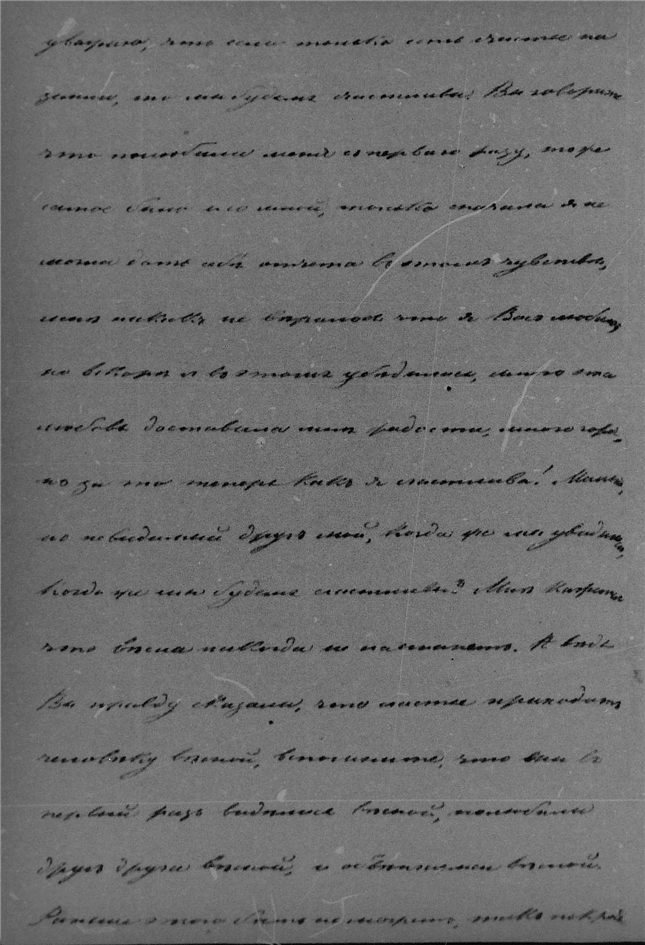 уверяю, что если только есть счастье на
земле, то мы будем счастливы. Вы говорите
что полюбили меня с первого разу, тоже
самое было и со мной, только сначала я не
могла дать себѣ отчета въ этомъ чувствѣ,
мнѣ никакъ не вѣрилось что я Васъ люблю,
но вскорѣ и въ этомъ убѣдилась, много эта
любовь доставила мнѣ радости, много горя,
но за то теперь какъ я счастлива! Милый,
но невидимый другъ мой, когда же мы увидимся,
когда же мы будемъ счастливы? Мнѣ кажется
что весна никогда не настанетъ. А ведь
Вы правду сказали, что счастье приходитъ
человѣку весной, вспомните, что мы въ
первый разъ видѣлись весной, полюбили
другъ друга весной, и обвѣнчаемся весной.
Раньше этого быть не можетъ, такъ по край